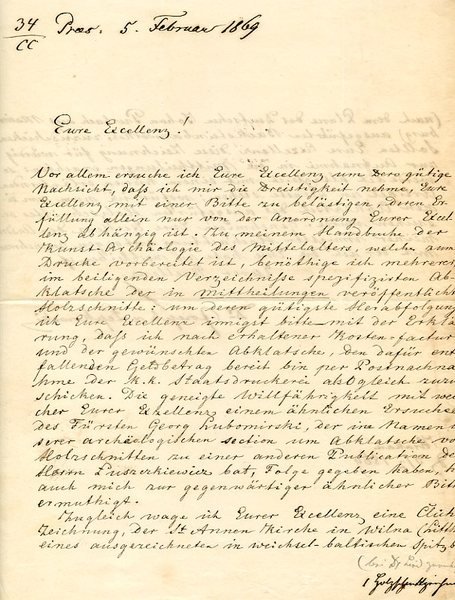 34
CC
Præs. 5. Februar 1869
Eure Excellenz!
Vor allem ersuche ich Eure Excellenz um Dero gütige
Nachsicht, daß ich mir die Dreistigkeit nehme, Eure
Excellenz mit einer Bitte zu belästigen, deren Er-
füllung allein nur von der Anordnung Eurer Excel-
lenz abhängig ist. Zu meinem Handbuche der
Kunst-Archäologie des Mittelalters, welches zum
Drucke vorbereitet ist, benöthige ich mehrerer,
im beiligenden Verzeichnisse spezifizirten Ab-
klatsche der in Mittheilungen veröffentlicht
Holzschnitte; um deren gütigste Herabfolgung
ich Eure Excellenz innigst bitte mit der Erklä-
rung, daß ich nach erhaltener Kosten-factur
und der gewünschten Abklatsche, den dafür ent-
fallenden Geldbetrag bereit bin per Postnachna-
hme der k.k. Staatsdruckerei alsogleich zuzu
schicken. Die geneigte Willfährigkeit mit wel
cher Eurer Excellenz einem ähnlichen Ersuchen
des Fürsten Georg Lubomirski, der im Namen u
serer archeologischen section um Abklatsche vo
Holzschnitten zu einer anderen Publication de
Herrn Luszczkiewicz bat, Folge gegeben haben, h
auch mich zur gegenwärtiger ähnlicher Bitt
ermuthigt.
Zugleich wage ich Eurer Excellenz eine Clich
Zeichnung, der St Annen Kirche in Wilna (Litth
eines ausgezeichneten in weichsel-baltischen Spitzb
1 Holzschnitt